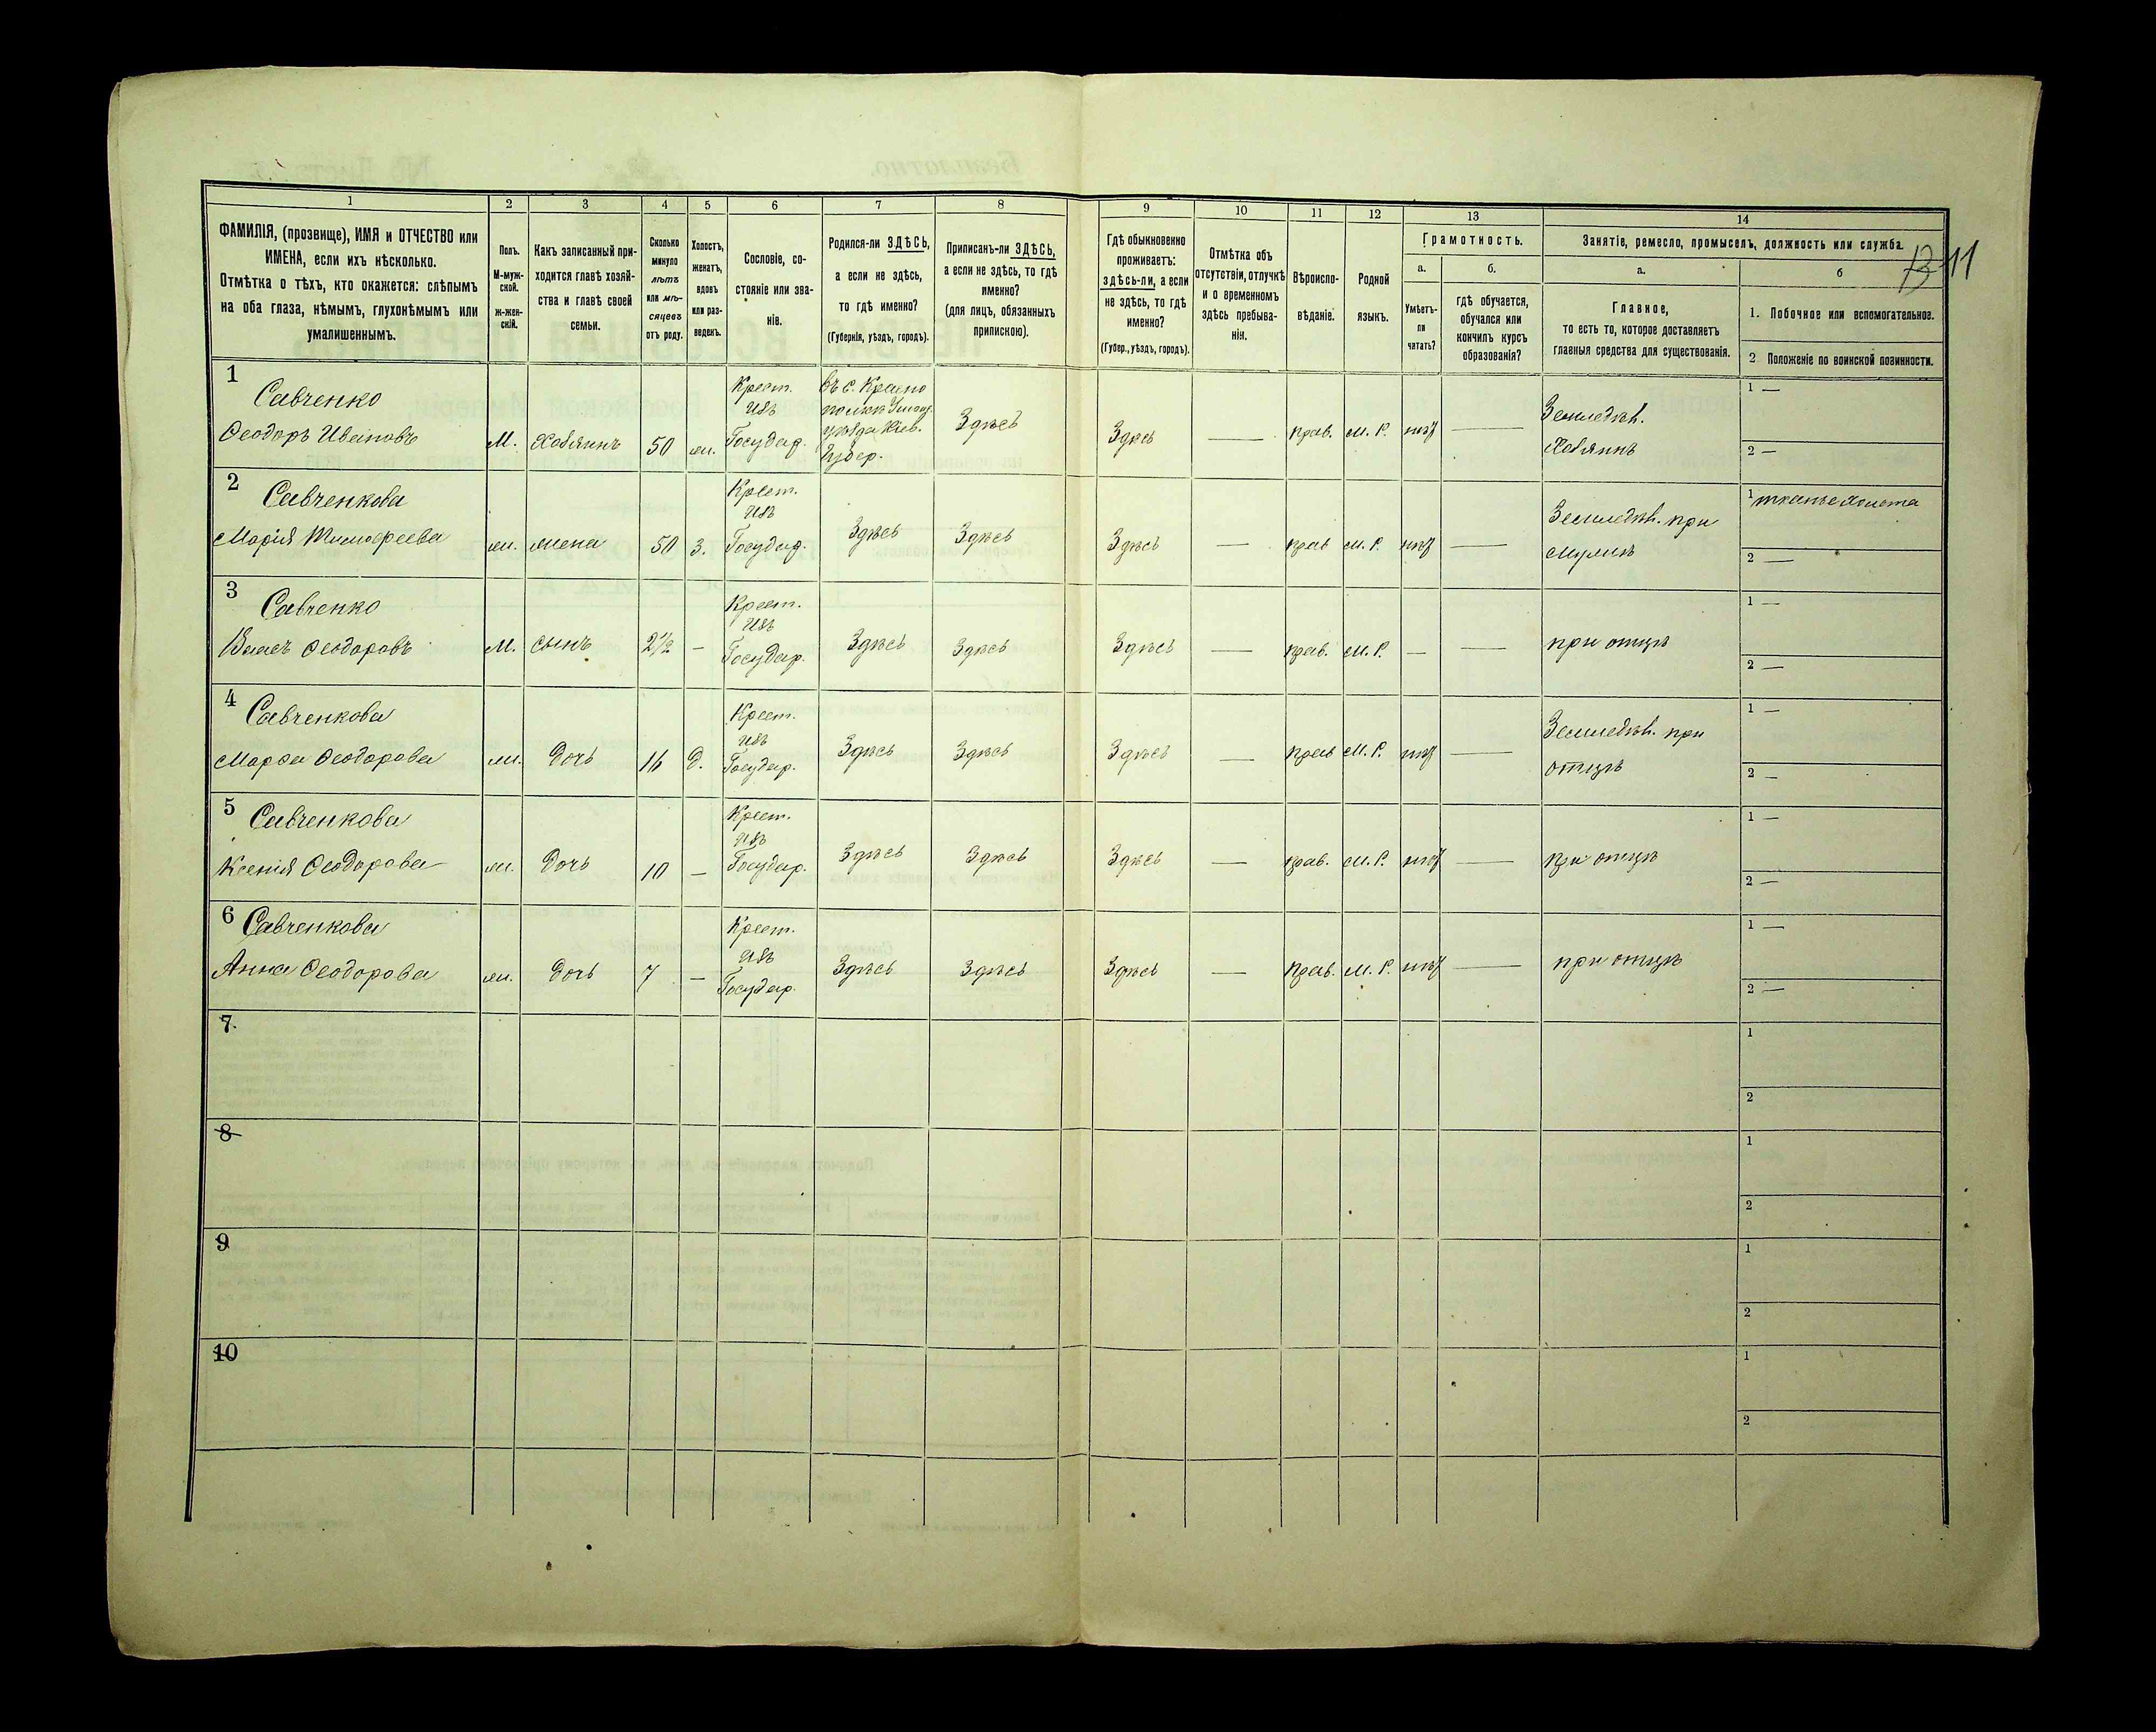 1 2 3 4 5 6 7 8 9 10 11 12 13 14
ФАМИЛІЯ, (прозвище), ИМЯ и ОТЧЕСТВО или
ИМЕНА, если ихъ нѣсколько.
Отмѣтка о тѣхъ, кто окажется: слѣпымъ
на оба глаза, нѣмымъ, глухонѣмымъ или
умалишеннымъ.
Полъ.
М-муж-
ской.
ж-жен-
скій.
Какъ записанный при-
ходится главѣ хозяй-
ства и главѣ своей
семьи.
Сколько
минуло
лѣтъ
или мѣ-
сяцевъ
отъ роду.
Холостъ,
женатъ,
вдовъ
или раз-
веденъ.
Сословіе, со-
стояніе или зва-
ніе.
Родился-ли ЗДѢСЬ,
а если не здѣсь,
то гдѣ именно?
(Губернія, уѣздъ, городъ).
Приписанъ-ли ЗДѢСЬ,
а если не здѣсь, то гдѣ
именно?
(для лицъ, обязанныхъ
припискою).
Гдѣ обыкновенно
проживаетъ:
здѣсь-ли, а если
не здѣсь, то гдѣ
именно?
(Губер., уѣздъ, городъ).
Отмѣтка объ
отсутствіи, отлучкѣ
и о временномъ
здѣсь пребыва-
ніи.
Вѣроиспо-
вѣданіе.
Родной
языкъ.
Грамотность.
а.
Умѣетъ-
ли
читать?
б.
гдѣ обучается,
обучался или
кончилъ курсъ
образованія?
Занятіе, ремесло, промыселъ, должность или служба.
13 11
а.
Главное,
то есть то, которое доставляетъ
главныя средства для существованія.
б
1. Побочное или вспомогательное.
2. Положеніе по воинской повинности.
1
Савченко
Ѳеодоръ Ивановъ
М.
Хозяинъ
50
ж.
Крест.
изъ
Государ.
въ с. Красно
уѣзда Кіев.
Губер.
Здѣсь
Здѣсь
—
прав.
М. Р.
нѣт
—
Земледѣл.
Хозяинъ
1 —
2 —
2
Савченкова
Марія Тимоѳеева
ж.
жена
50
З.
Крест.
изъ
Государ.
Здѣсь
Здѣсь
Здѣсь
—
прав
М. Р.
нѣт
—
Земледѣл. при
мужѣ
1 тканье холста
2 —
3
Савченко
Власъ Ѳеодоровъ
М.
сынъ
2½
—
Крест.
изъ
Государ.
Здѣсь
Здѣсь
Здѣсь
—
прав.
М. Р.
—
—
при отцѣ
1 —
2 —
4
Савченкова
Марѳа Ѳеодорова
ж.
дочь
16
д.
Крест.
изъ
Государ.
Здѣсь
Здѣсь
Здѣсь
—
прав
М. Р.
нѣт
—
Земледѣл. при
отцѣ
1 —
2 —
5
Савченкова
Ксенія Ѳеодорова
ж.
дочь
10
—
Крест.
изъ
Государ.
Здѣсь
Здѣсь
Здѣсь
—
прав.
М. Р.
нѣт
—
при отцѣ
1 —
2 —
6
Савченкова
Анна Ѳеодорова
ж.
дочь
7
—
Крест.
изъ
Государ.
Здѣсь
Здѣсь
Здѣсь
—
прав.
М. Р.
нѣт
—
при отцѣ
1 —
2 —
7
1
2
8
1
2
9
1
2
10
1
2